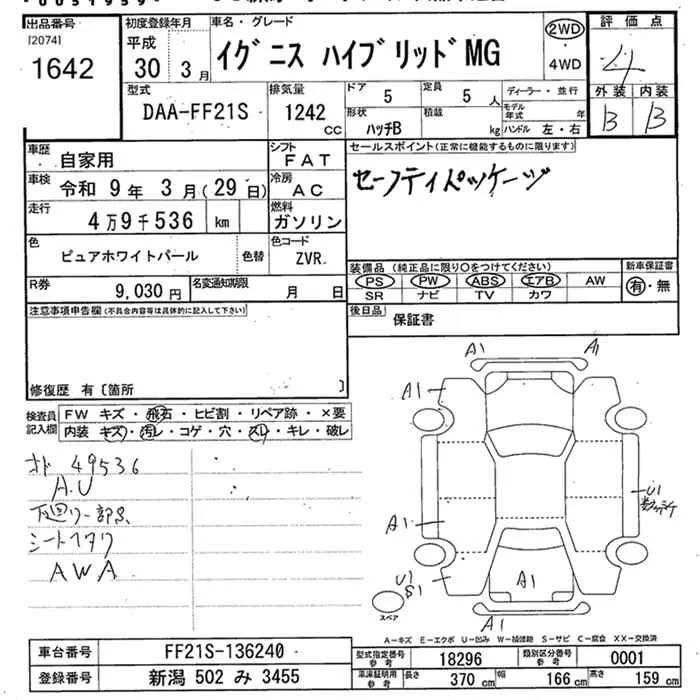 出品番号 初度登録年月 車名・グレード 評価点
[2074] 平成 イグニス ハイブリッド MG 2WD 4
1642 30 3月 ・4WD 外装 内装
型式 排気量 ドア 定員 ディーラー・並行 B B
DAA-FF21S 1242 cc 5 5 人 モデル年式 年
形状 積載 kg ハンドル 左・右
ハッチB
車歴 自家用 シフト FAT セールスポイント(正常に機能するものに限ります)
車検 令和 9年 3月(29日) 冷房 AC セーフティパッケージ
走行 4万9千536 km 燃料 ガソリン
色 ピュアホワイトパール 色替 色コード ZVR
装備品 (純正品に限り○をつけてください) 新車保証書
R券 9,030円 名変通知期限 月 日 PS PW ABS エアB AW 有・無
SR ナビ TV カワ
注意事項申告欄(不具合内容等は具体的に記入して下さい) 後日品 保証書
修復歴 有〔箇所 〕
検査員記入欄 FW キズ・飛石・ヒビ割・リペア跡・×要
内装 キズ・汚レ・コゲ・穴・スレ・キレ・破レ
オド 49536
A.U
下回り一部S
シート
AWA
A1 A1
A1
A1
U1
U1
S1
A1
A1
スペア
A-キズ E-エクボ U-凹み W-補修跡 S-サビ C-腐食 XX-交換済
車台番号 FF21S-136240 型式指定番号 参考 18296 類別区分番号 参考 0001
登録番号 新潟 502 み 3455 車庫証明用 参考 長さ 370 cm 幅 166 cm 高さ 159 cm